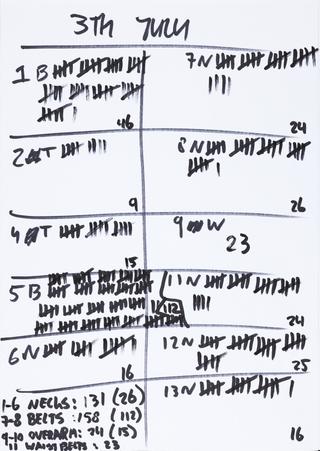 3TH JULY
1 B
46
2 T
9
4 T
15
5 B
112
6 N
16
7 N
24
8 N
26
9 W
23
11 N
24
12 N
25
13 N
16
1-6 NECKS: 131 (26)
7-8 BELTS: 158 (112)
9-10 OVERARM: 24 (15)
11 WAIST BELTS: 23